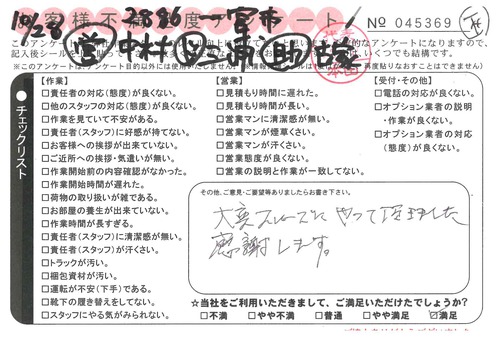 お客様不満足度アンケート
10/28 2886 一宮市
No 045369
営 中村
記入後シールを
※このアンケートは、アンケート目的以外には使用いたしません。
チェックリスト
【作業】
□責任者の対応(態度)が良くない。
□他のスタッフの対応(態度)が良くない。
□作業を見ていて不安がある。
□責任者(スタッフ)に好感が持てない。
□お客様への挨拶が出来ていない。
□ご近所への挨拶・気遣いが無い。
□作業開始前の内容確認がなかった。
□作業開始時間が遅れた。
□荷物の取り扱いが雑である。
□お部屋の養生が出来ていない。
□作業時間が長すぎる。
□責任者(スタッフ)に清潔感が無い。
□責任者(スタッフ)が汗くさい。
□トラックが汚い。
□梱包資材が汚い。
□運転が不安(下手)である。
□靴下の履き替えをしてない。
□スタッフにやる気がみられない。
【営業】
□見積もり時間に遅れた。
□見積もり時間が長い。
□営業マンに清潔感が無い。
□営業マンが煙草くさい。
□営業マンが汗くさい。
□営業態度が良くない。
□営業の説明と作業が一致してない。
【受付・その他】
□電話の対応が良くない。
□オプション業者の説明
・作業が良くない。
□オプション業者の対応
(態度)が良くない。
その他、ご意見・ご要望等ありましたらお書き下さい。
大変スムーズにやって頂きました
感謝します。
☆当社をご利用いただきまして、ご満足いただけたでしょうか?
□不満 □やや不満 □普通 □やや満足 ☑満足